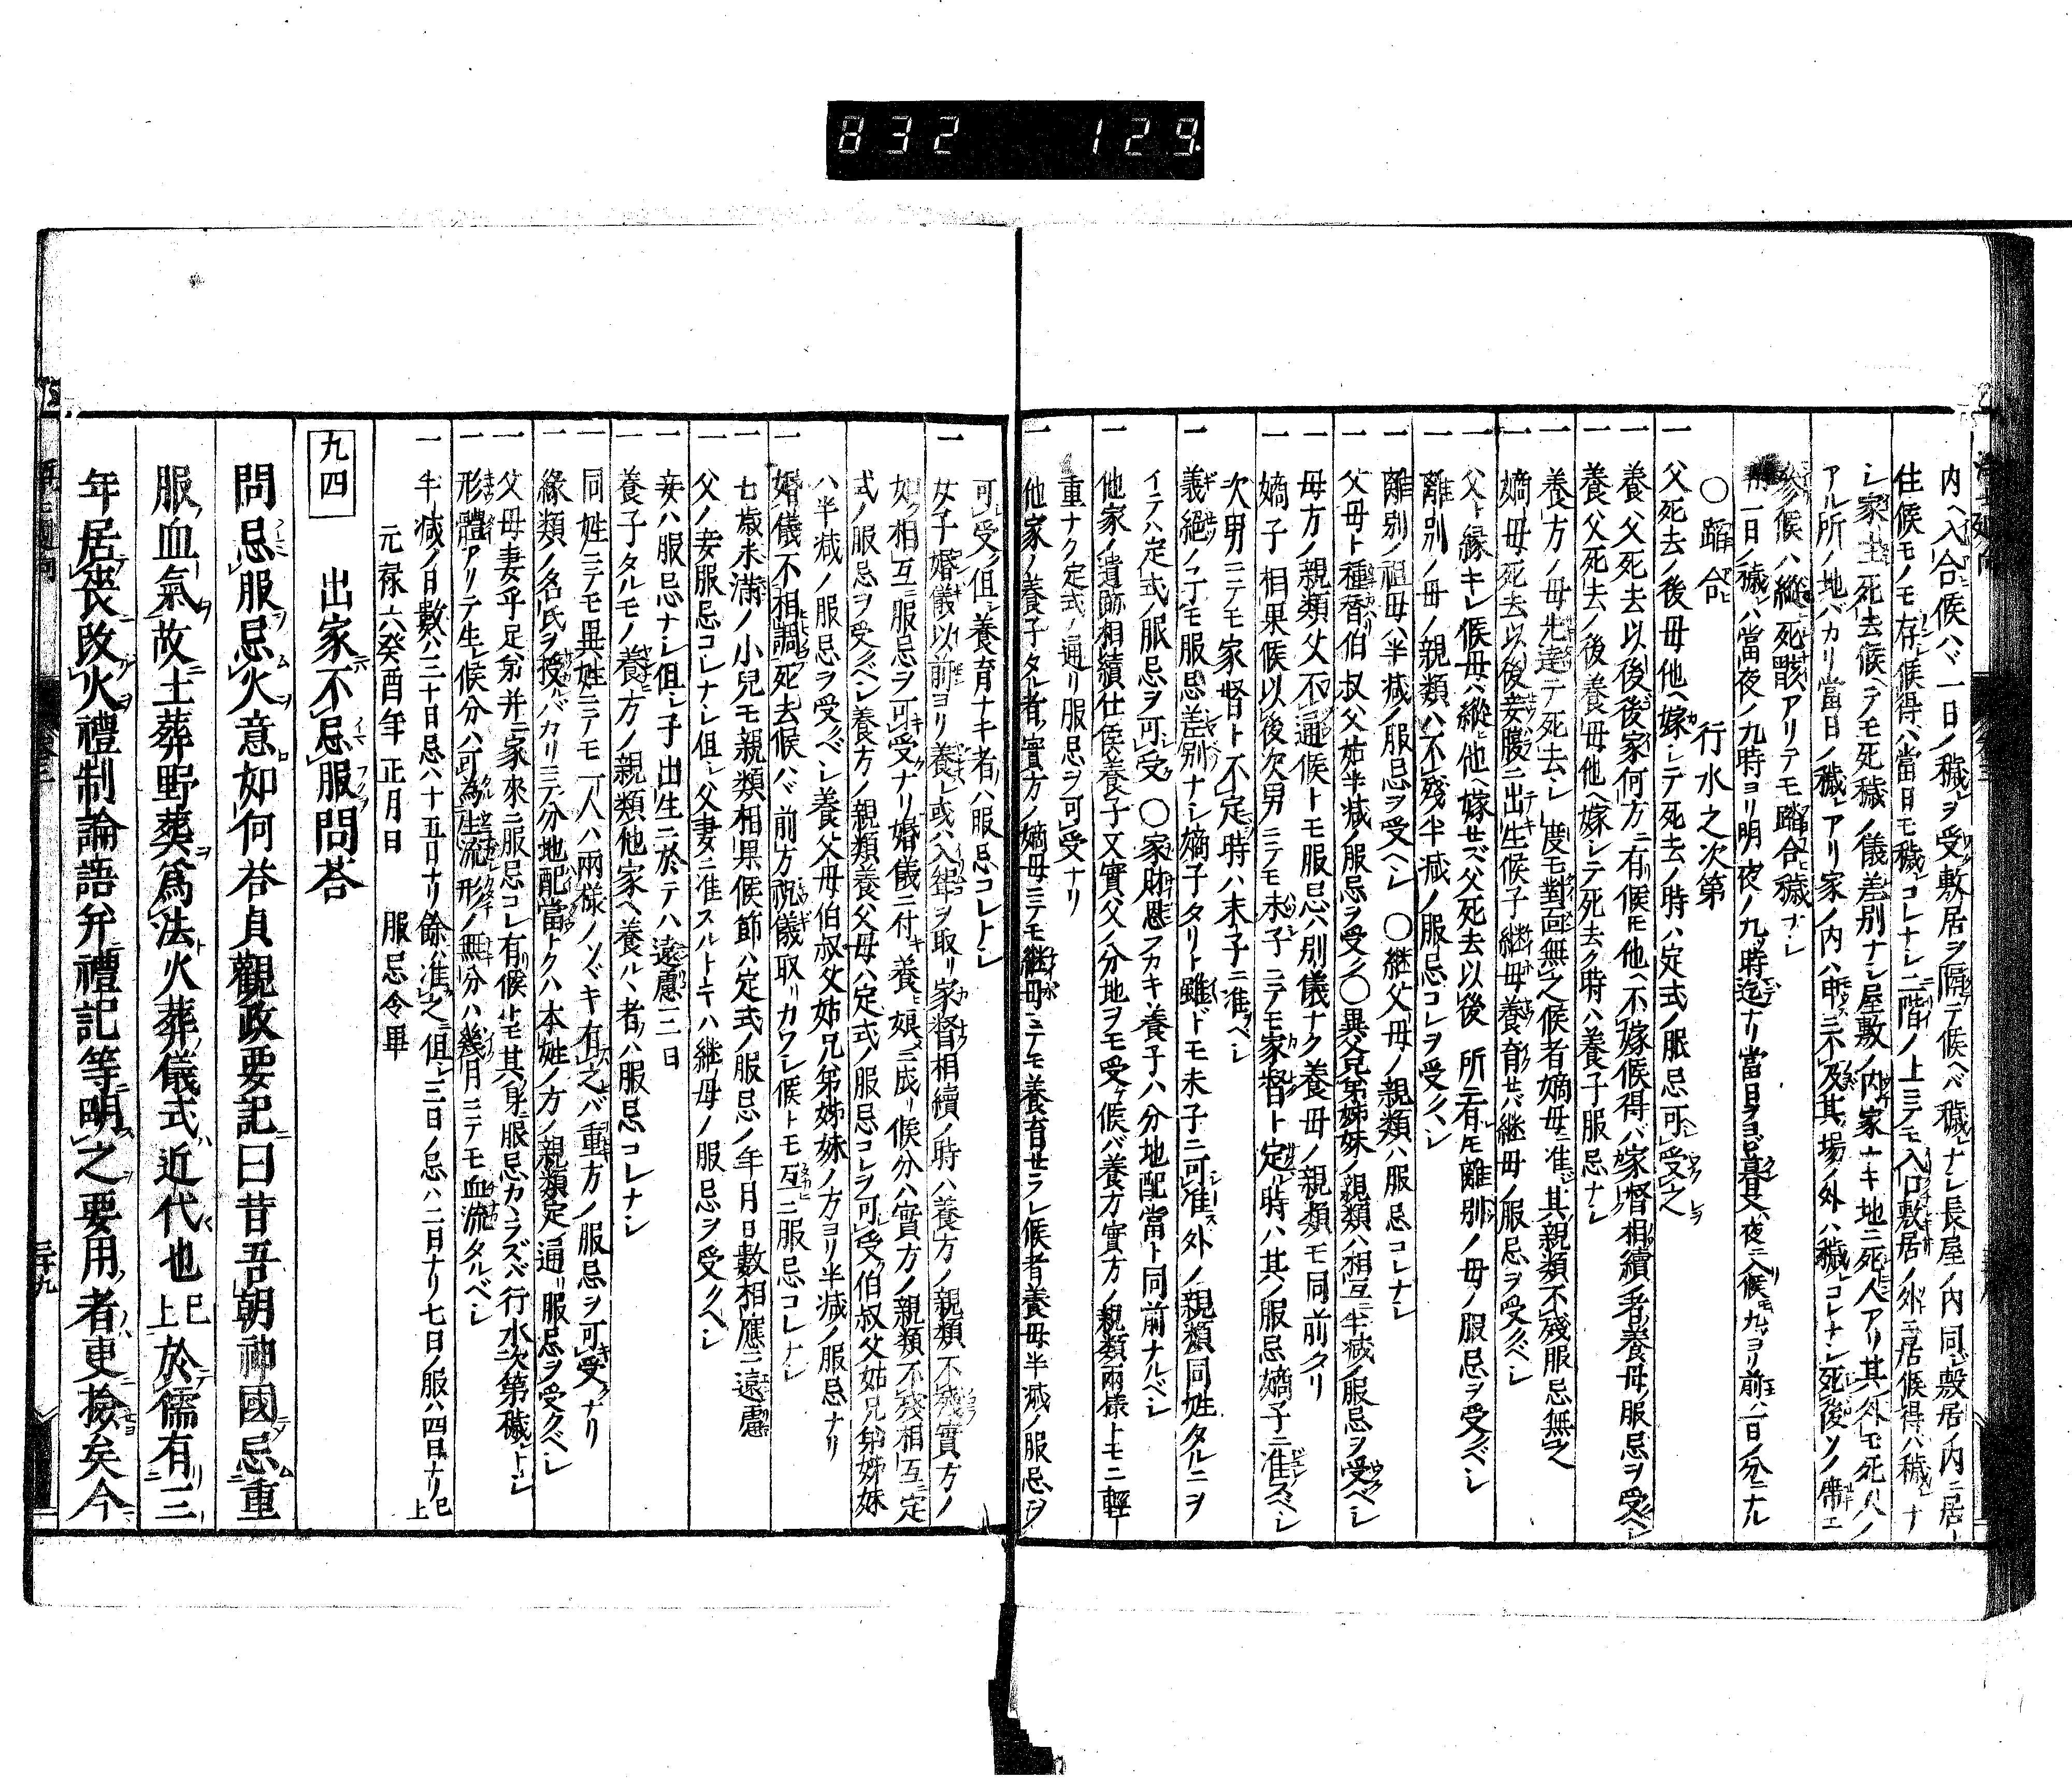 832 129
内ヘ入合候ハヾ一日ノ穢ヲ受敷居ヲ隔テ候ヘバ穢ナシ長屋ノ内同シ敷居ノ内ニ居
住候モノモ存候得ハ當日モ穢コレナシ二階ノ上ニテモ入口敷居ノ外ニ居候得ハ穢ナ
シ家主死去候ヘテモ死穢ノ儀差別ナシ屋敷ノ内家ナキ地ニ死人アリ其外モ死人ノ
アル所ノ地バカリ當日ノ穢アリ家ノ内ハ申ニ不及其場ノ外ハ穢コレナシ死後ソノ席ニ
參候ハ縱死骸アリテモ蹈合穢ナシ
一日ノ穢ハ當夜ノ九時ヨリ明夜ノ九時迄ナリ當日ヲ暮其夜ニ入候モ九ヨリ前ハ一日ノ分ニナル
〇蹈合 行水之次第
一父死去ノ後母他ヘ嫁シテ死去ノ時ハ定式ノ服忌可受之
一養父死去以後後家何方ニ有候モ他ヘ不嫁候得バ家督相續者養母服忌ヲ受ベシ
一養父死去ノ後養母他ヘ嫁シテ死去ク時ハ養子服忌ナシ
一養方ノ母先達テ死去シ一度モ對面無之候者嫡母ニ准其親類不殘服忌無之
一嫡母死去以後妾腹ニ出生候子繼母養育セバ継母ノ服忌ヲ受クベシ
一父ト縁キレ候母ハ縱他ヘ嫁セズ父死去以後所ニ有モ離別ノ母ノ服忌ヲ受クベシ
一離別ノ母ノ親類ハ不殘半減ノ服忌コレヲ受クベシ
一離別ノ祖母ハ半減ノ服忌ヲ受ヘシ 〇継父母ノ親類ハ服忌コレナシ
一父母ト種替伯叔父姑半減ノ服忌ヲ受ク〇異父兄弟姉妹ノ親類ハ相互ニ半減ノ服忌ヲ受ベシ
一母方ノ親類父不通候トモ服忌ハ別儀ナク養母ノ親類モ同前タリ
一嫡子相果候以後次男ニテモ末子ニテモ家督ト定時ハ其ノ服忌嫡子ニ准スベシ
次男ニテモ家督ト不定時ハ末子ニ准ベシ
一義絶ノ子モ服忌差別ナシ嫡子タリト雖ドモ末子ニ可准外ノ親類同姓タルニヲ
イテハ定式ノ服忌ヲ可受 〇家財恩フカキ養子ハ分地配當ト同前ナルベシ
一他家ノ遺跡相續仕候養子又實父ノ分地ヲモ受候バ養方實方ノ親類兩樣トモニ輕
重ナク定式ノ通リ服忌ヲ可受ナリ
一他家ノ養子タル者實方ノ嫡母ニテモ継母ニテモ養育セラレ候者養母半減ノ服忌ヲ
可受但養育ナキ者ハ服忌コレナシ
一女子婚儀以前ヨリ養レ或ハ入聟ヲ取リ家督相續ノ時ハ養方ノ親類不殘實方ノ
如ク相互ニ服忌ヲ可受ナリ婚儀ニ付キ養娘ニ成リ候分ハ實方ノ親類不殘相互定
式ノ服忌ヲ受クベシ養方ノ親類養父母ハ定式ノ服忌コレヲ可受伯叔父姑兄弟姉妹
ハ半減ノ服忌ラ受クベシ養父母伯叔父姉兄弟姉妹ノ方ヨリ半減ノ服忌ナリ
一婚儀不相調死去候ハバ前方祝儀取リカワシ候トモ互ニ服忌コレナシ
一七歳未滿ノ小兒モ親類相果候節ハ定式ノ服忌ノ年月日數相應ニ遠慮
一父ノ妾服忌コレナシ但シ父妻ニ准スルトキハ継母ノ服忌ヲ受クベシ
一妾ハ服忌ナシ但シ子出生ニ於テハ遠慮三日
一養子タルモノ養方ノ親類他家ヘ養ルヽ者ハ服忌コレナシ
一同姓ニテモ異姓ニテモ一人ハ兩樣ノツヾキ有之バ重方ノ服忌ヲ可受ナリ
一縁類ノ名氏ヲ授バカリニテ分地配當トクハ本姓ノ方ノ親類定ノ通リ服忌ヲ受クベシ
一父母妻子足弟并ニ家來ニ服忌コレ有候トモ其身服忌カヽラズバ行水次第穢トシ
一形體アリテ生レ候分ハ可為生流形ノ無分ハ幾月ニテモ血流タルベシ
一半減ノ日數ハ三十日忌ハ十五日ナリ餘ハ准之但三日ノ忌ハ二日ナリ七日ノ服ハ四日ナリ已上
元禄六癸酉年正月日 服忌令畢
九四 出家不忌服問荅
問忌服忌火意如何荅貞觀政要記曰昔吾朝神國忌重
服血氣故土葬野葬爲法火葬儀式近代也已上於儒有三
年居喪改火禮制論語弁禮記等明之要用者更撿矣今